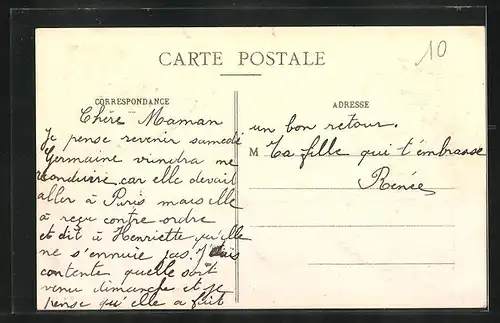 CARTE POSTALE
10
CORRESPONDANCE
ADRESSE
Chère Maman
Je pense revenir samedi
Germaine viendra me
reconduire car elle devait
aller à Paris mais elle
à reçu contre ordre
et dit à Henriette qu'elle
ne s'ennuie pas. J'suis
contente quelle soit
venu dimanche et je
pense qu'elle a fait
un bon retour.
M
Ta fille qui t'embrasse
Renée